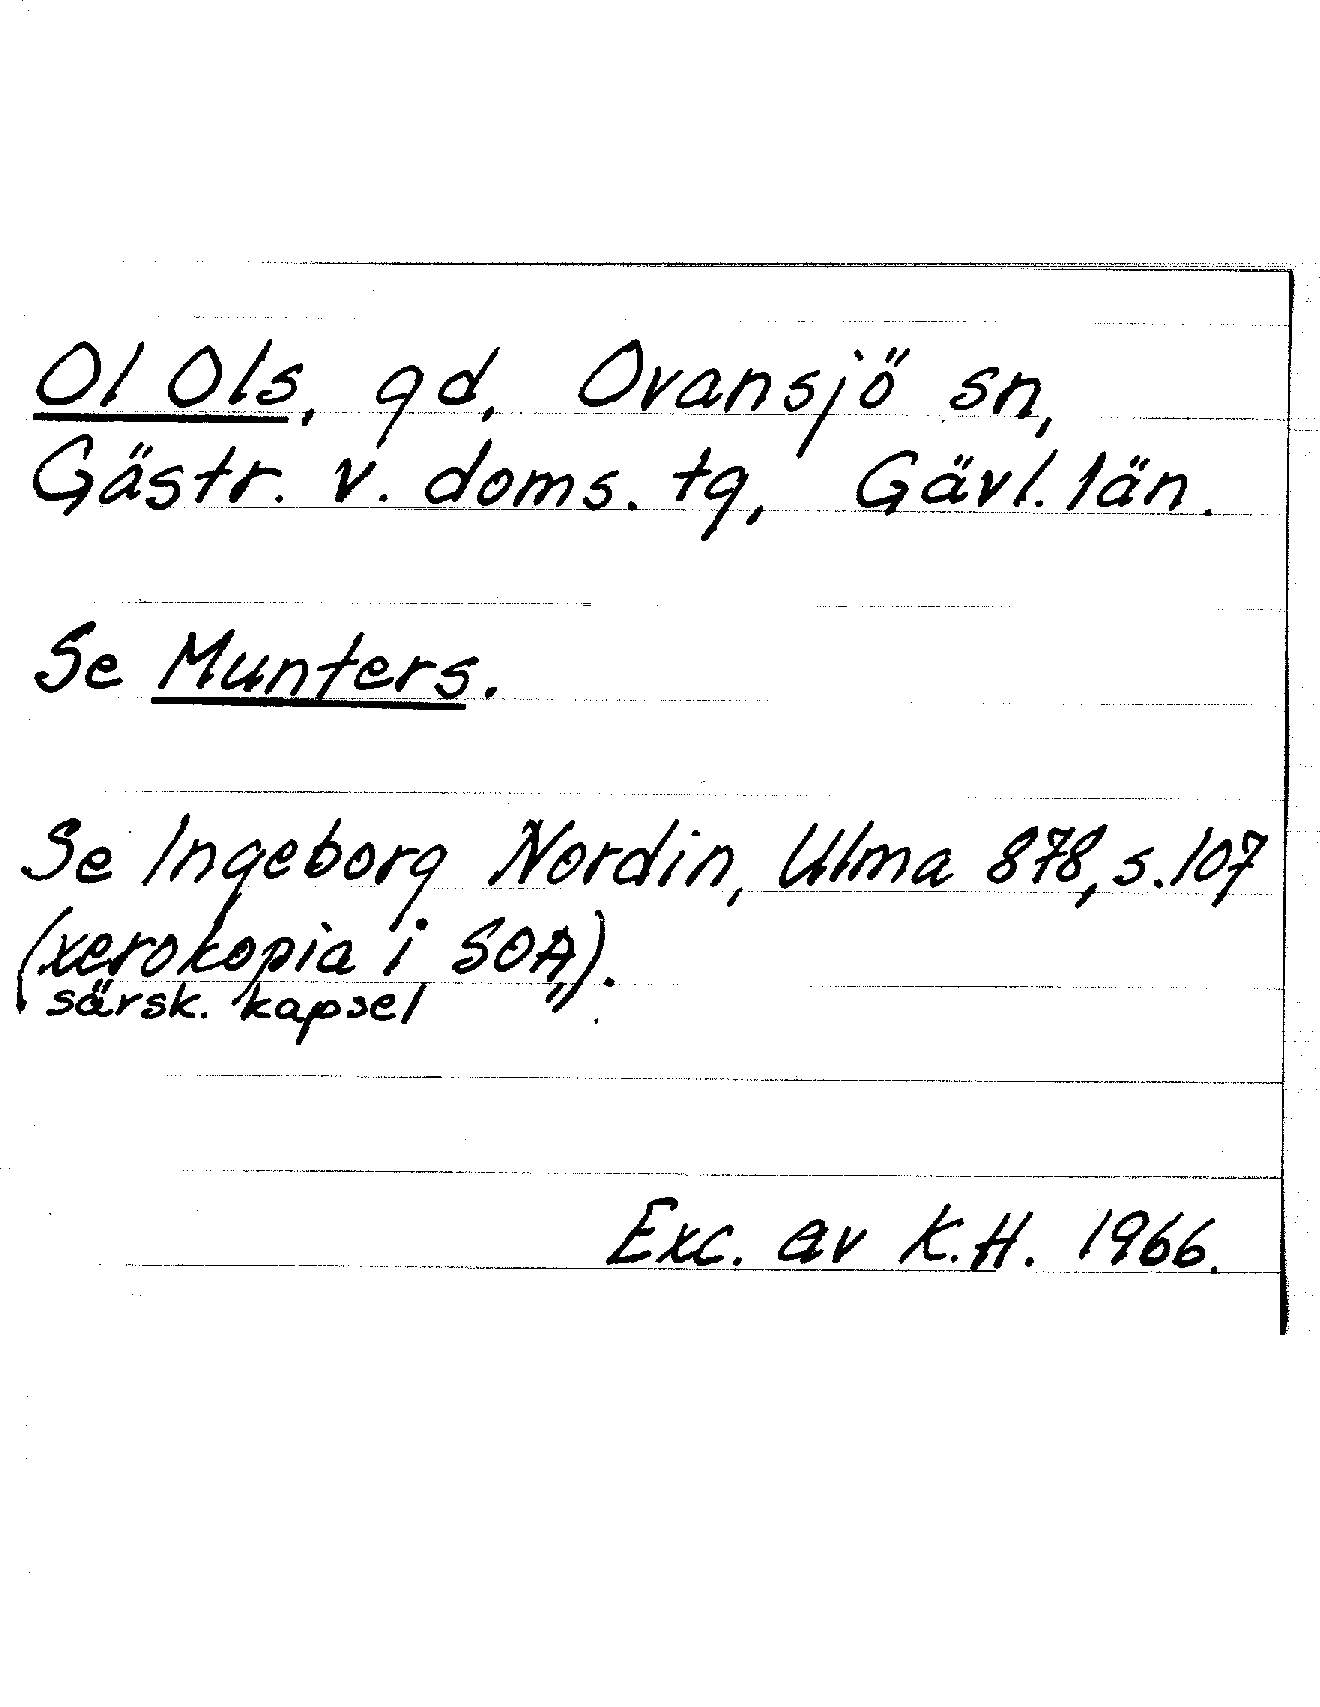 Ol Ols, gd, Ovansjö sn,
Gästr. v. doms. tg, Gävl. län.
Se Munters.
Se Ingeborg Nordin, Ulma 878, s. 107
(xerokopia i SOA).
särsk. kapsel
Exc. av K.H. 1966.